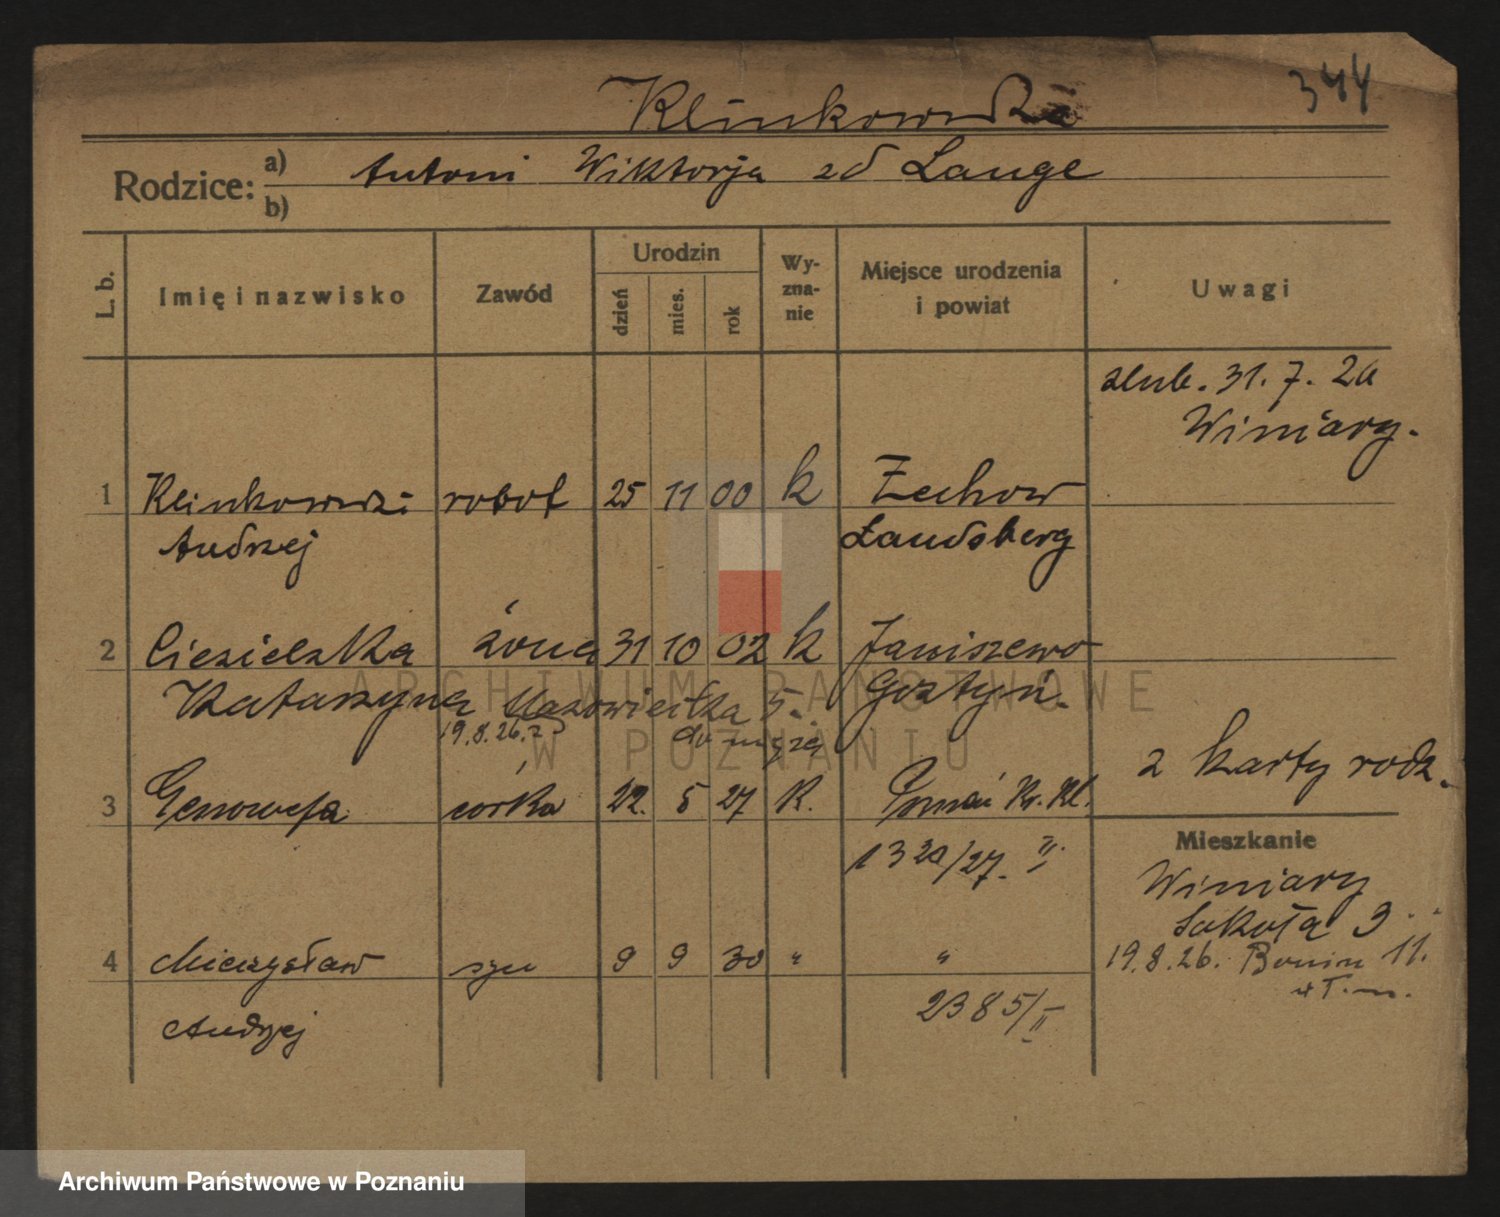 344
Klinkowski
Rodzice: a) Antoni Wiktorja zd Lange
b)
L. b. Imię i nazwisko Zawód Urodzin dzień mies. rok Wy-zna-nie Miejsce urodzenia i powiat Uwagi
ślub. 31. 7. 26
Winiary.
1 Klinkowski robot 25 11 00 k Zechow
Andrzej Landsberg
2 Ciesielska żona 31 10 02 k Janiszewo
Katarzyna Mazowiecka 5. Gostyń.
19.8.26. do męża
z karty rodz.
3 Genowefa córka 22. 5 27 K. Poznań
1320/27. II
Mieszkanie
Winiary
Sokoła 3
19.8.26. Bonin 11.
4 Mieczysław syn 9 9 30 " "
Andrzej 2385/II
ARCHIWUM PAŃSTWOWE
W POZNANIU
Archiwum Państwowe w Poznaniu